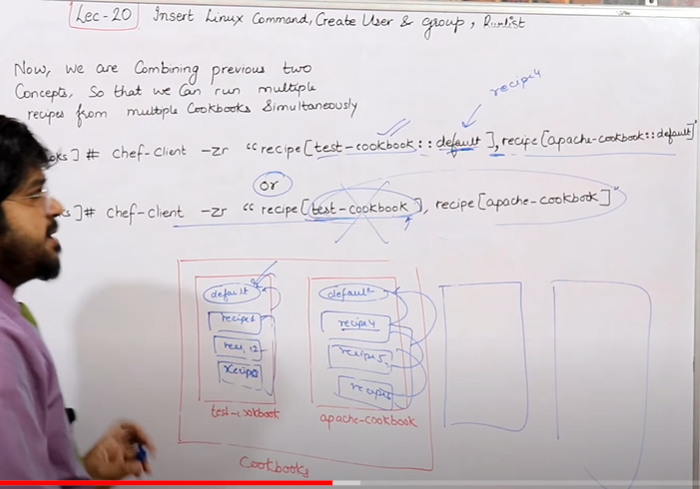 Lec-20 Insert Linux Command, Create User & group, Runlist
Now, we are Combining previous two
Concepts, So that we Can run multiple
recipes from multiple Cookbooks Simultaneously
recipe4
ks] # chef-client -zr "recipe[test-cookbook::default], recipe[apache-cookbook::default]"
or
ks]# chef-client -zr "recipe[test-cookbook], recipe[apache-cookbook]"
default
default
recipe4
recipe5
recipe
test-cookbook
apache-cookbook
Cookbooks